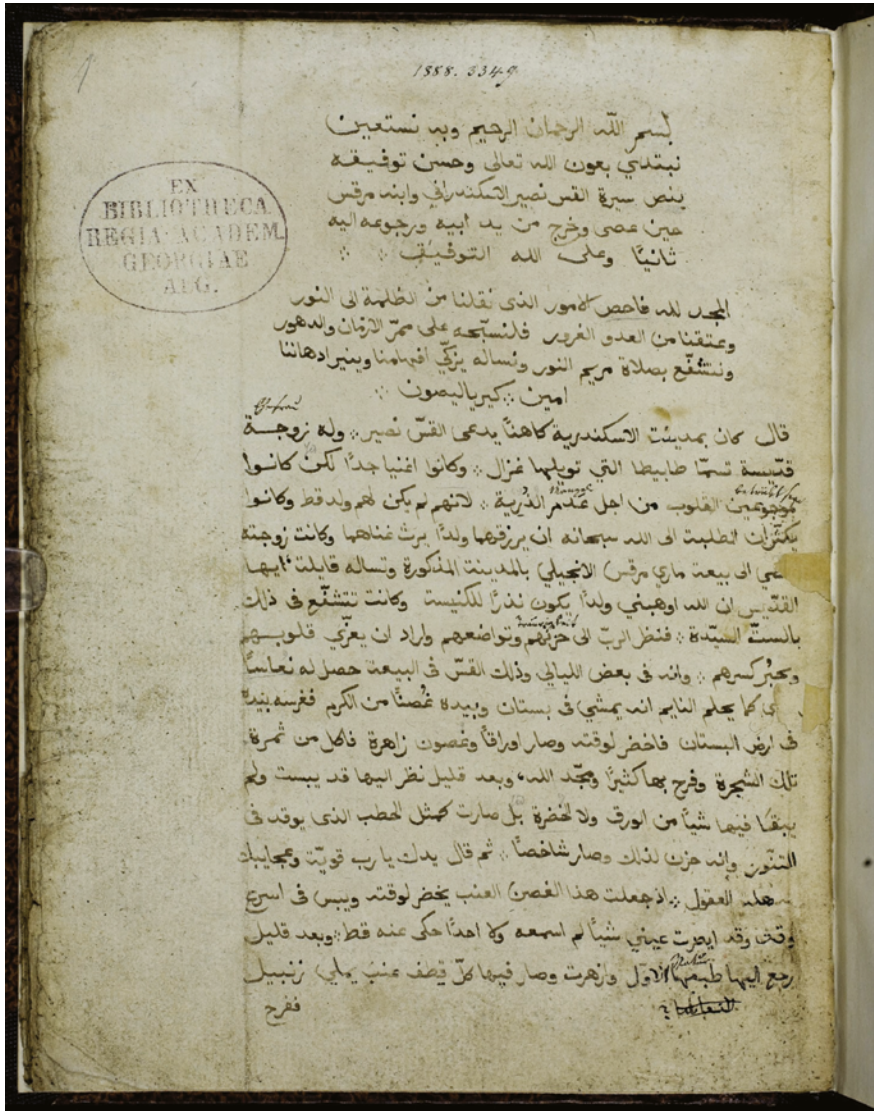 1888. 3349.
EX
BIBLIOTHECA
REGIA ACADEM.
GEORGIAE
AUG.
بسم الله الرحمان الرحيم وبه نستعين
نبتدي بعون الله تعالى وحسن توفيقه
بنص سيرة القس نصير الاسكندراني وابنه مرقس
حين عصى وخرج من يد ابيه ورجوعه اليه
ثانيًا وعلى الله التوفيق
المجد لله فاحص الامور الذى نقلنا من الظلمة الى النور
وعتقنا من العدو الغرور فلنسبّحه على ممرّ الازمان والدهور
ونتشفّع بصلاة مريم النور ونساله يزكّي افهامنا وينير ادهاننا
امين كيرياليصون
قال كان بمدينت الاسكندرية كاهنًا يدعى القسّ نصير وله زوجة
قدّيسة تسمّا طابيطا التي تويلها غزال وكانوا اغنيا جدًا لكن كانوا
موجوعين القلوب من اجل عدم الذرية لانهم لم يكن لهم ولد قط وكانوا
يكثّران الطلبة الى الله سبحانه ان يرزقهما ولدًا يرث غناهما وكانت زوجته
الى بيعة ماري مرقس الانجيلي بالمدينة المذكورة وتساله قايلة ايها
القدّيس ان الله اوهبني ولدًا يكون نذرًا للكنيسة وكانت تتشفّع فى ذلك
بالستّ السيّدة فنظر الربّ الى حزنهم وتواضعهم واراد ان يعزّي قلوبهم
ويجبُر كسرهم وانه فى بعض الليالي وذلك القسّ فى البيعة حصل له نعاسًا
كما يحلم النايم انه يمشي فى بستان وبيده غُصنًا من الكرم فغرسه بيده
فى ارض البستان فاخضر لوقته وصار اوراقًا وغصون زاهرة فاكل من ثمرة
تلك الشجرة وفرح بها كثيرًا ومجّد الله، وبعد قليل نظر اليها قد يبست ولم
يبقا فيها شيًا من الورق ولا الخضرة بل صارت كمثل الحطب الذى يوقد فى
التنّور وانه حزن لذلك وصار شاخصًا ثم قال يدك يا رب قويّة وعجايبك
العقول اذ جعلت هذا الغصن العنب يخضر لوقته ويبس فى اسرع
وقت وقد ابصرت عيني شيًا لم اسمعه ولا احدًا حكى عنه قط وبعد قليل
رجع اليها طبعها الاوّل وازهرت وصار فيها كلّ قطف عنب يملي زنبيل
ففرح